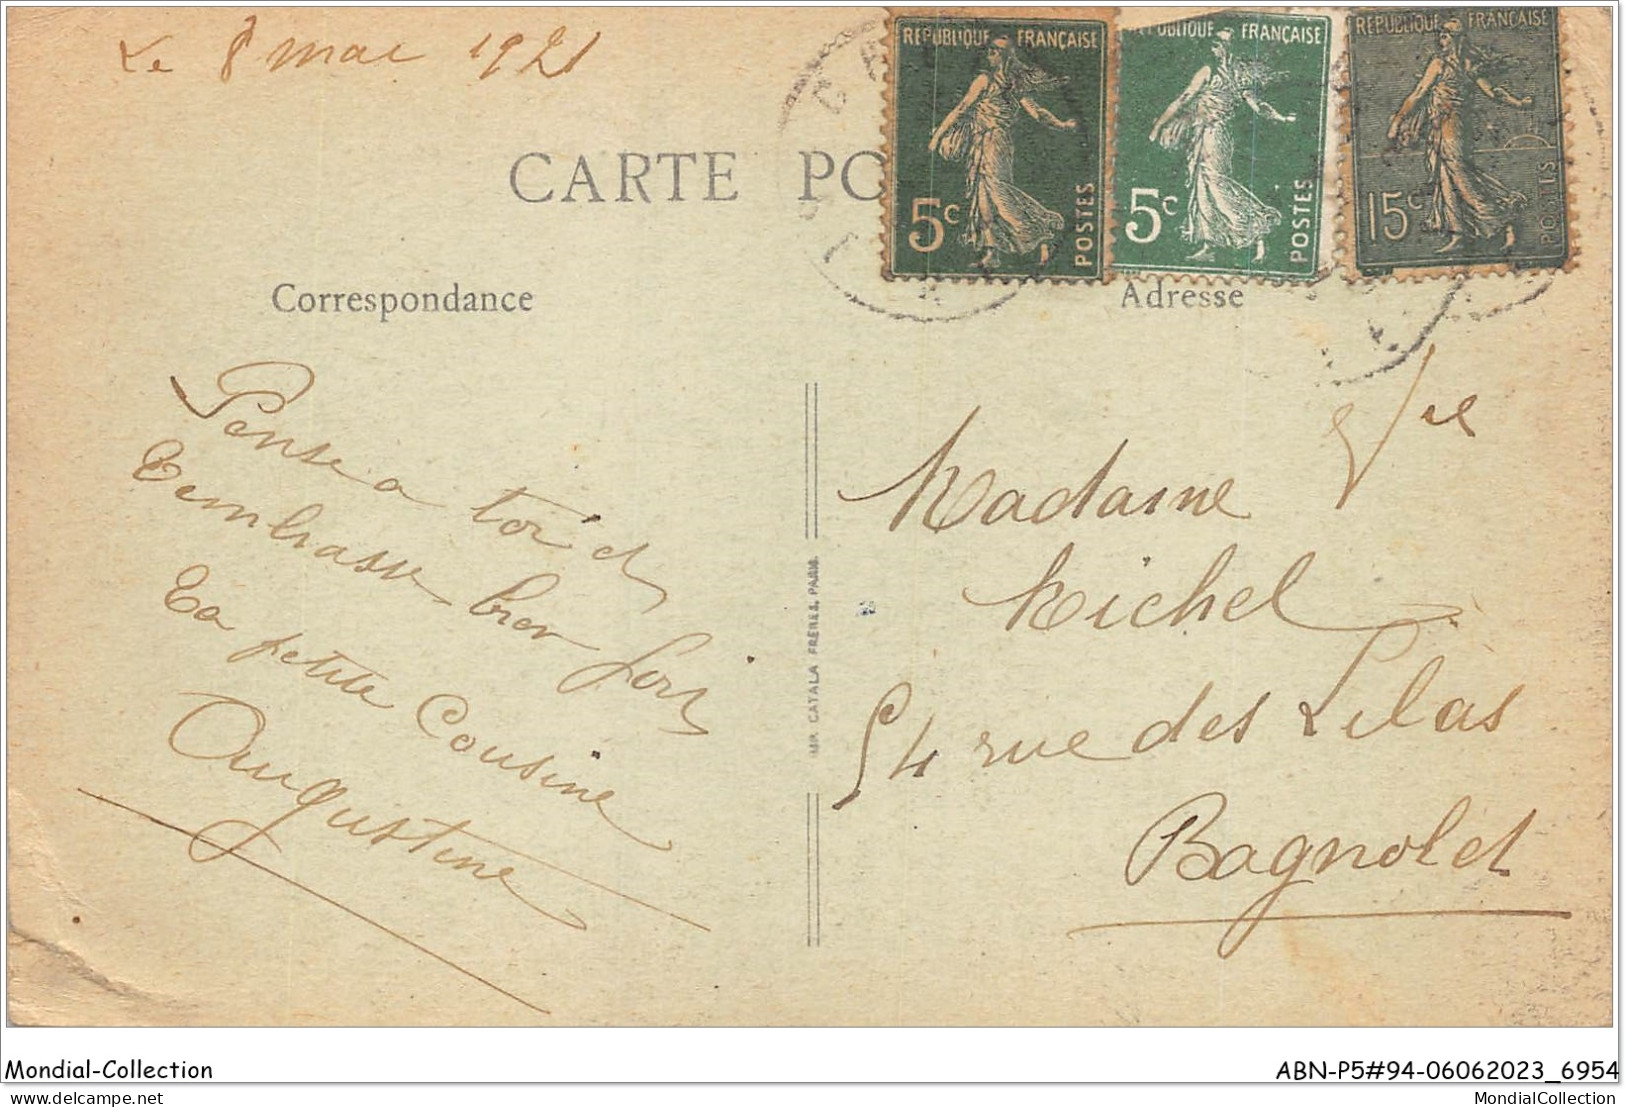 Le 8 mai 1921
REPUBLIQUE FRANÇAISE
REPUBLIQUE FRANÇAISE
REPUBLIQUE FRANÇAISE
5c
POSTES
5c
POSTES
15c
POSTES
CARTE PO
Correspondance
Adresse
Pense a toi et
t'embrasse bien fort
Ta petite Cousine
Augustine
IMP. CATALA FRERES, PARIS
Madame
Michel
54 rue des Lilas
Bagnolet
Mondial-Collection
ABN-P5#94-06062023_6954
MondialCollection